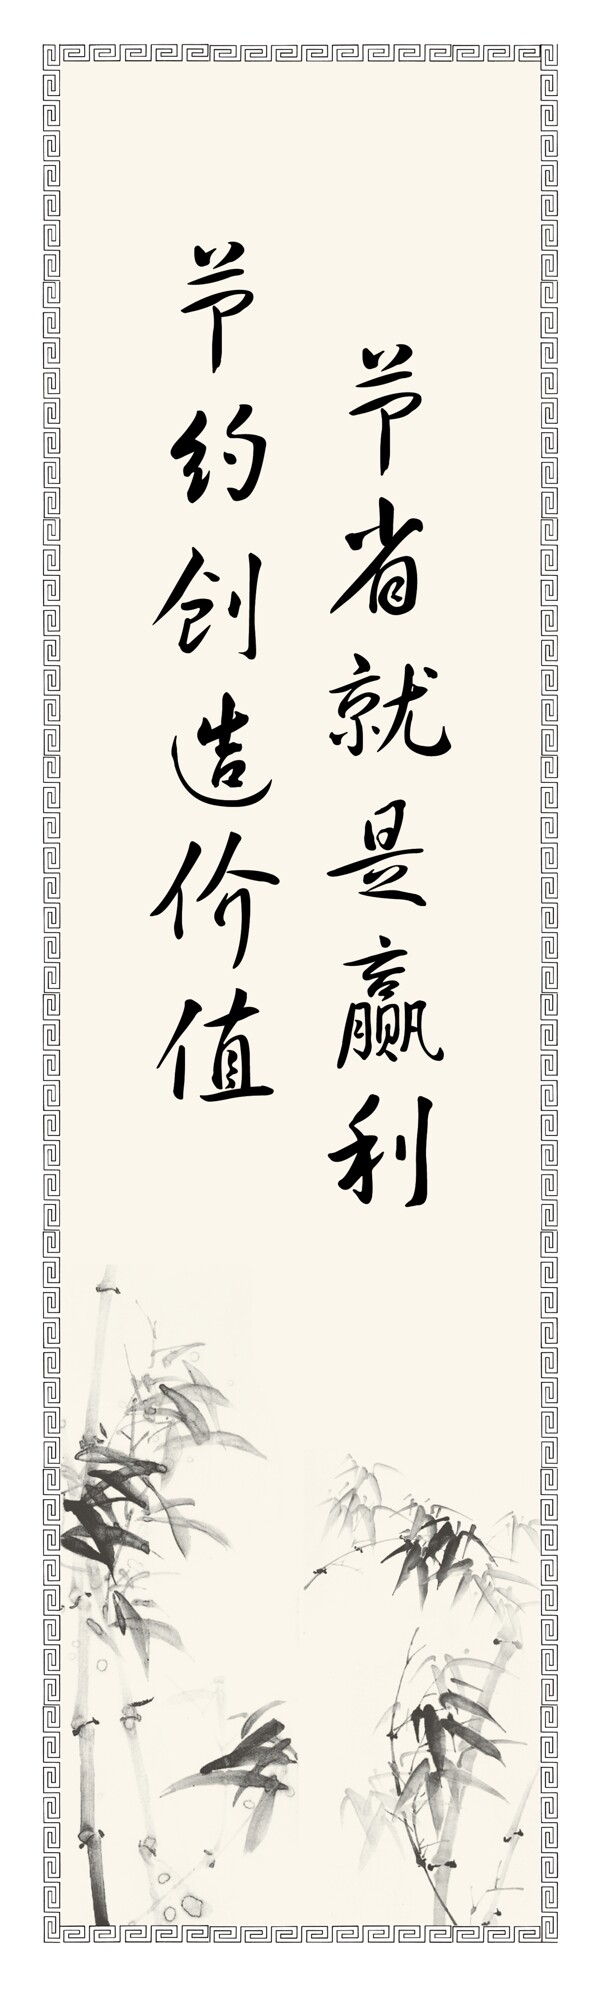 节约创造价值
节省就是赢利